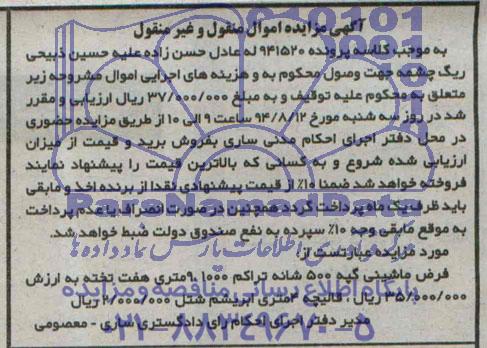 آگهی مزایده اموال منقول و غیر منقول
به موجب کلاسه پرونده ۹۴۱۵۲۰ له عادل حسن زاده علیه حسین ذبیحی
ریگ چشمه جهت وصول محکوم به و هزینه های اجرایی اموال مشروحه زیر
متعلق به محکوم علیه توقیف و به مبلغ ۳۷/۰۰۰/۰۰۰ ریال ارزیابی و مقرر
شد در روز سه شنبه مورخ ۹۴/۸/۱۲ ساعت ۹ الی ۱۰ از طریق مزایده حضوری
در محل دفتر اجرای احکام مدنی ساری بفروش برسد و قیمت از میزان
ارزیابی شده شروع و به کسانی که بالاترین قیمت را پیشنهاد نمایند
فروخته خواهد شد ضمنا ۱۰٪ از قیمت پیشنهادی نقدا از برنده اخذ و مابقی
باید ظرف یک ماه پرداخت گردد همچنین در صورت انصراف یا عدم پرداخت
به موقع مابقی وجه ۱۰٪ سپرده به نفع صندوق دولت ضبط خواهد شد.
مورد مزایده عبارتست از:
فرش ماشینی گبه ۵۰۰ شانه تراکم ۱۰۰۰ ۹متری هفت تخته به ارزش
۳۵/۰۰۰/۰۰۰ ریال ، قالیچه ۴متری ابریشم شتل ۲/۰۰۰/۰۰۰ ریال
مدیر دفتر اجرای احکام رای دادگستری ساری - معصومی
ParsNamadData
پایگاه اطلاع رسانی مناقصه و مزایده
۰۲۱-۸۸۳۴۹۶۷۰-۵